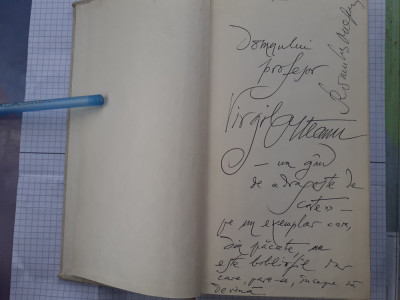 Domnului
profesor
Virgil Olteanu
— un gând
de dragoste de
carte —
pe un exemplar care,
din păcate nu
este bibliofil dar
care, pare-se, începe să
devină
Romulus